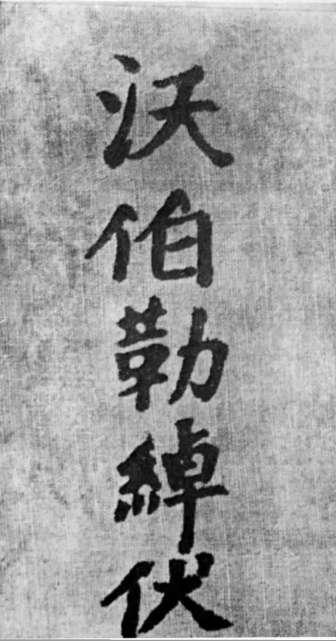 沃伯勒綽伏